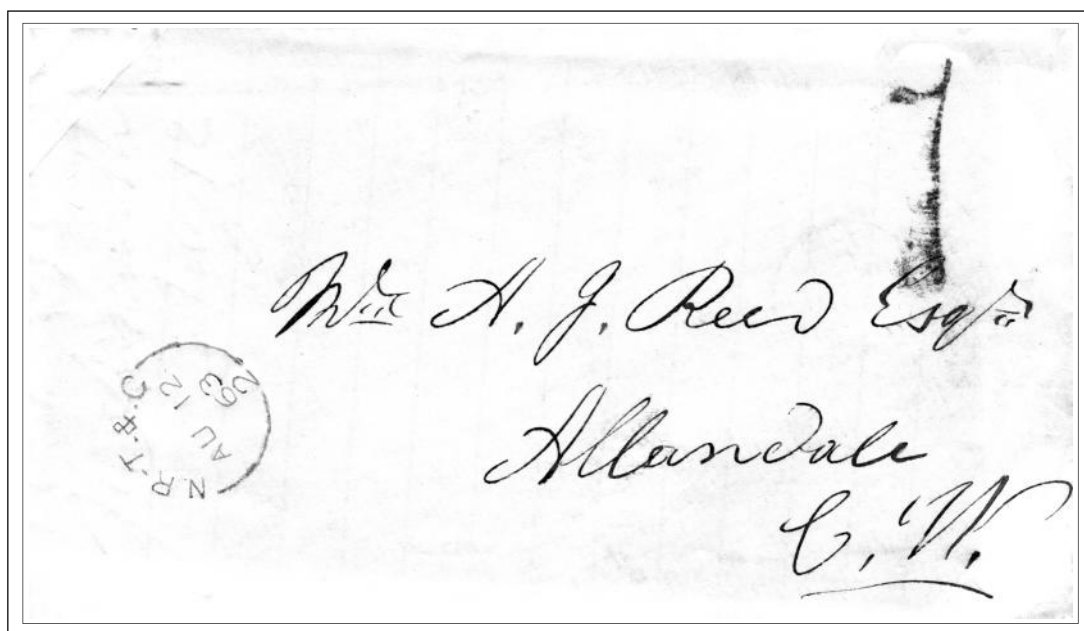 1
Wm H. J. Reed Esqr
Allandale
C. W.
N.R.T.&.C
AU 12
63
2